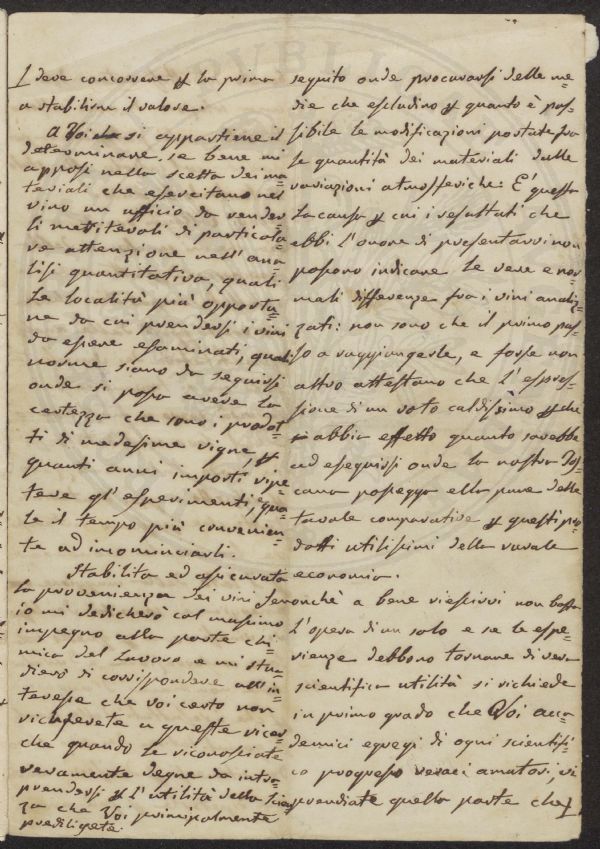 deve concorrere ꝑ la prima
a stabilirne il valore.
A Voi si appartiene il
determinare, se bene mi
apposi nella scelta dei ma=
teriali che esercitano nel
vino un ufficio da render
li meritevoli di particola=
re attenzione nell'ana=
lisi quantitativa, quali
le località più opportu=
ne da cui prendersi i vini
da essere esaminati, quali
norme siano da seguirsi
onde si possa avere la
certezza che sono i prodot=
ti di medesime vigne, ꝑ
quanti anni importi ripe=
tere gl'esperimenti, qua=
le il tempo più convenien=
te ad incominciarli.
Stabilita ed assicurata
la provenienza dei vini
io mi dedicherò col massimo
impegno alla parte chi=
mica del lavoro e mi stu=
dierò di corrispondere all'in=
teresse che voi certo non
ricuserete a queste ricer
che quando le riconosciate
veramente degne da intra=
prendersi ꝑ l'utilità della Scien
za che Voi principalmente
prediligete.
seguito onde procurarsi delle me=
die che escludino ꝑ quanto è pos=
sibile le modificazioni portate fra
le quantità dei materiali dalle
variazioni atmosferiche: E' questa
la causa ꝑ cui i resultati che
ebbi l'onore di presentarvi non
possono indicare le vere e nor=
mali differenze fra i vini analiz=
zati: non sono che il primo pas=
so a raggiungerle, e forse non
altro attestano che l'espres=
sione di un voto caldissimo ꝑ che
abbia effetto quanto sarebbe
ad eseguirsi onde la nostra Tos=
cana possegga ella pure delle
tavole comparative ꝑ questi pro
dotti utilissimi della rurale
economia.
Senonchè a bene riescirvi non basta
l'opera di un solo e se le espe=
rienze debbono tornare di vera
scientifica utilità si richiede
in primo grado che Voi acca=
demici egregi di ogni scientifi=
co progresso veraci amatori, vi
prendiate quella parte che